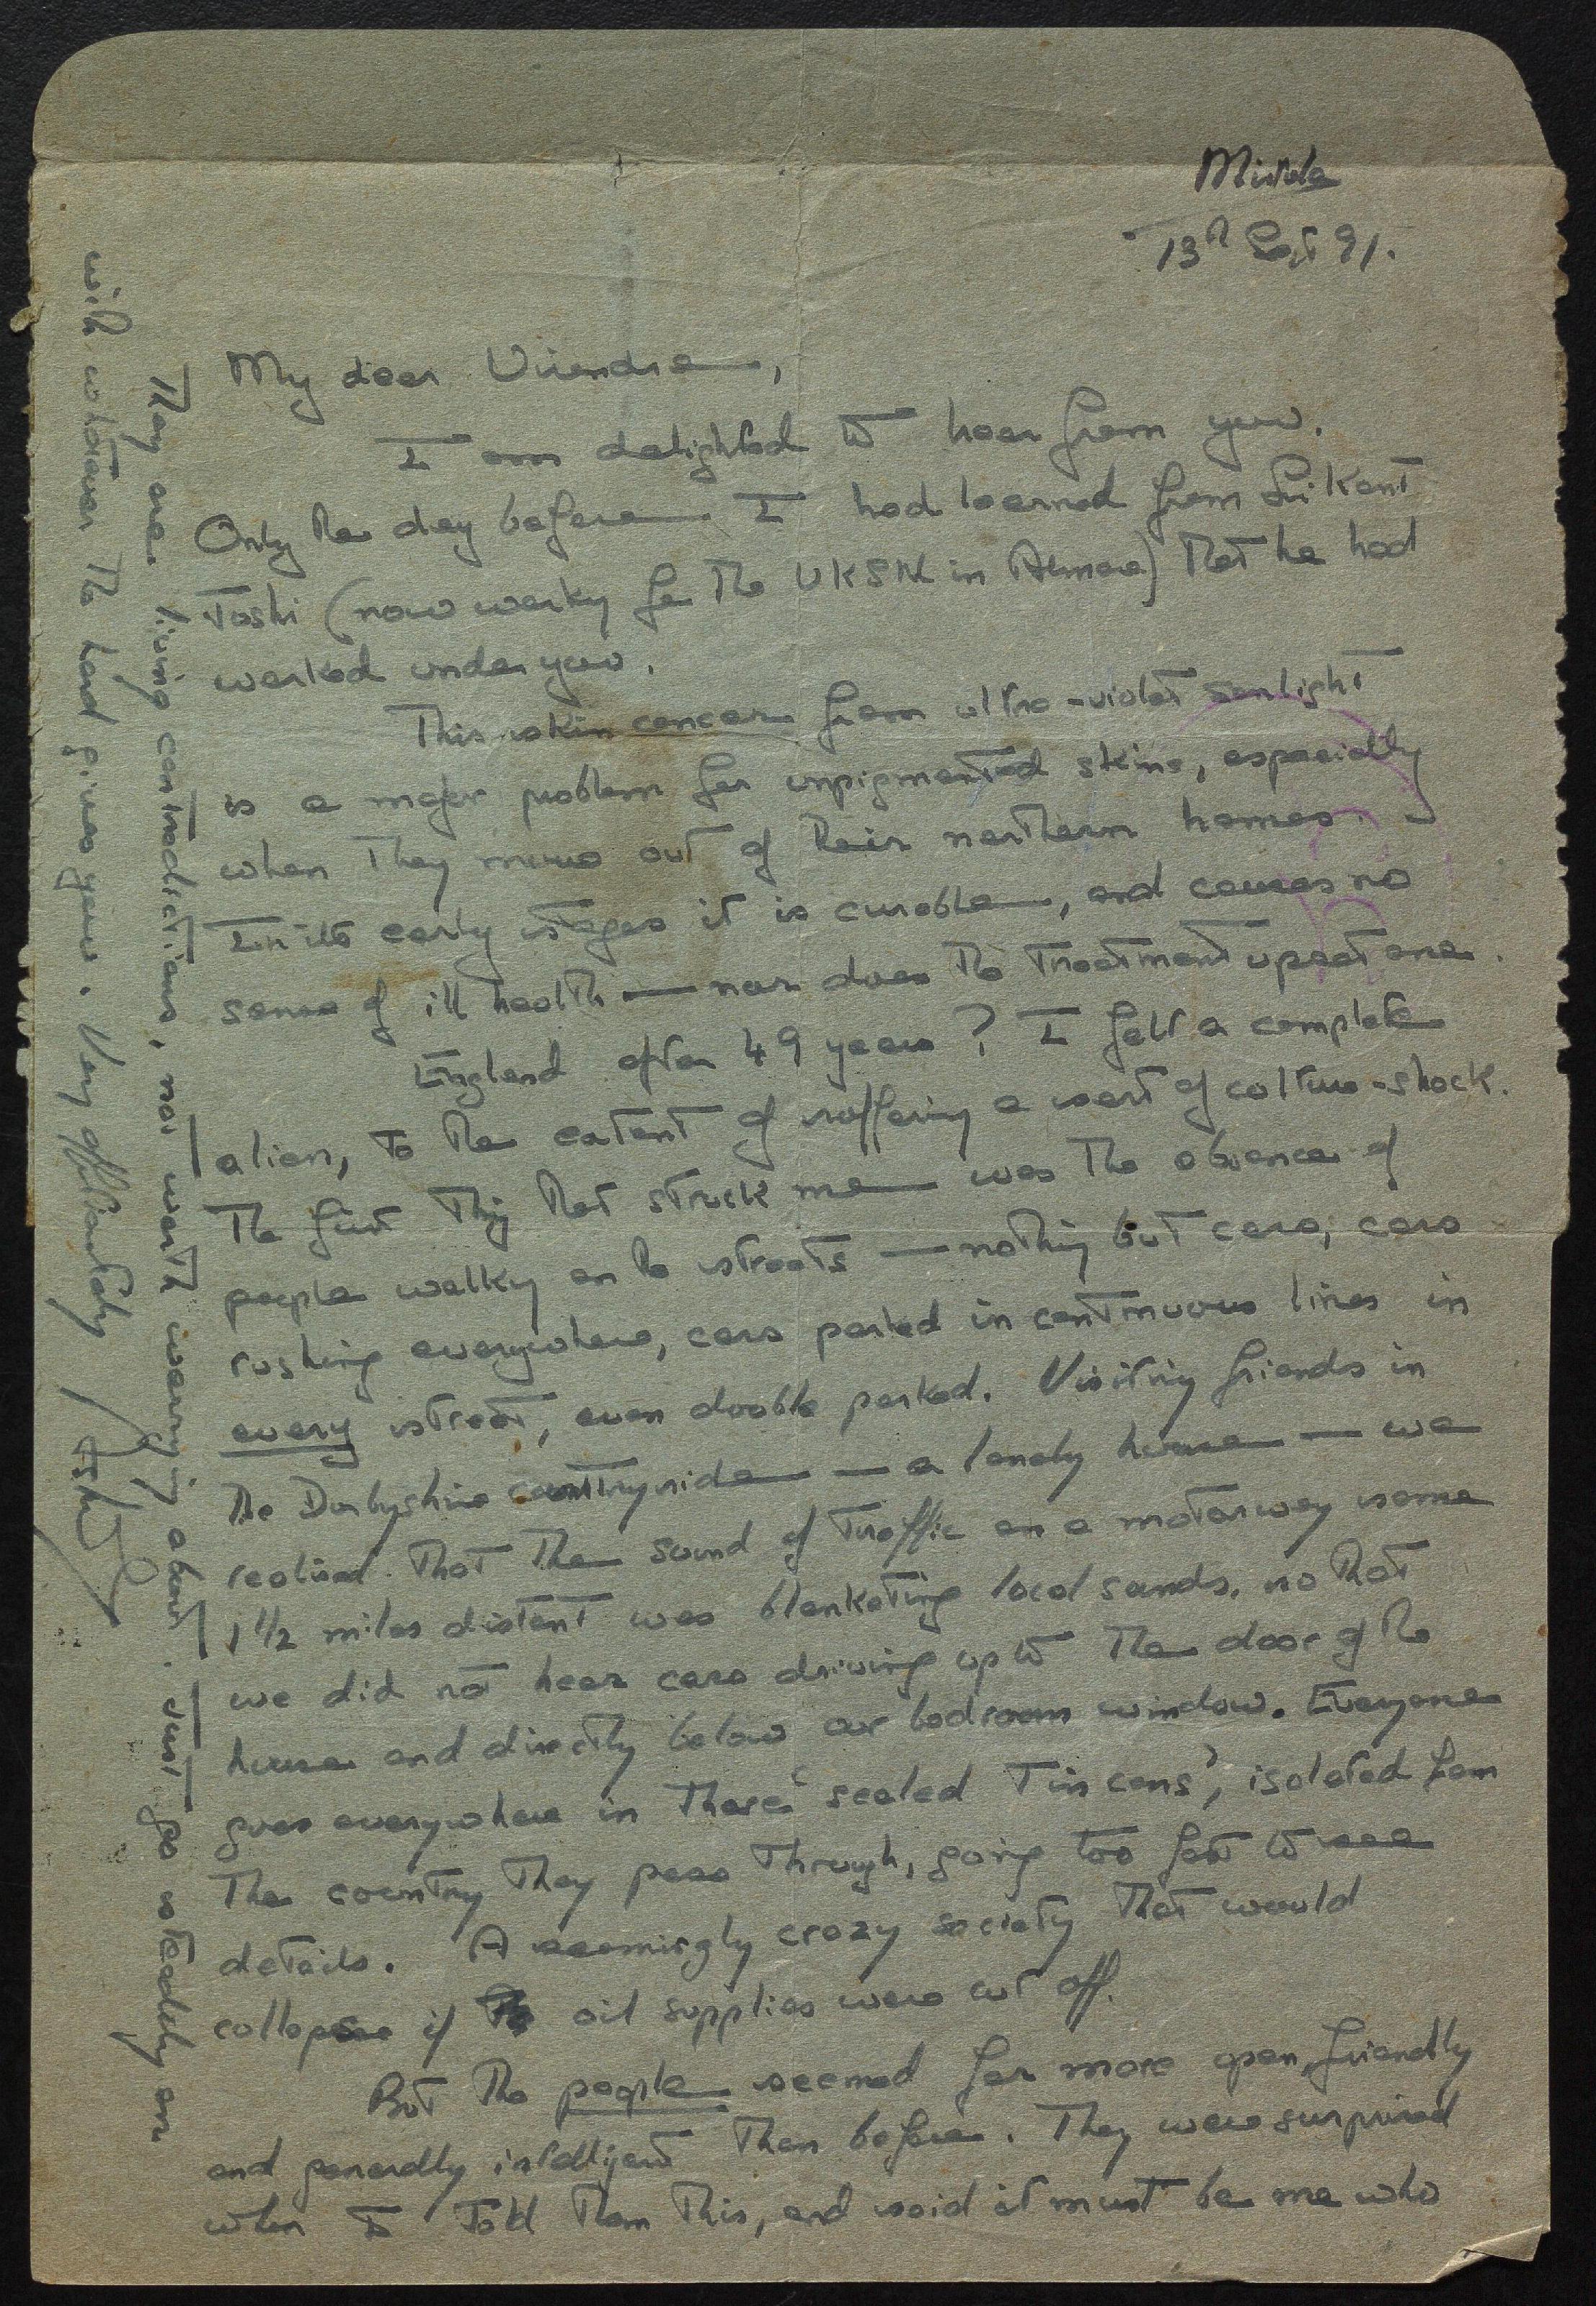 Mirtola
13th Sept 91.
My dear Virendra,
I am delighted to hear from you.
Only the day before I had learned from Sri Kant
Joshi (now working for the UKSN in Almora) that he had
worked under you.
This skin cancer from ultra-violet sunlight
is a major problem for unpigmented skins, especially
when they move out of their northern homes.
In its early stages it is curable, and causes no
sense of ill health — nor does the treatment upset one.
England after 49 years? I felt a complete
alien, to the extent of suffering a sort of culture-shock.
The first thing that struck me was the absence of
people walking on the streets — nothing but cars, cars
rushing everywhere, cars parked in continuous lines in
every street, even double parked. Visiting friends in
the Derbyshire countryside — a lonely house — we
realised that the sound of traffic on a motorway some
1 1/2 miles distant was blanketing local sounds, so that
we did not hear cars driving up to the door of the
house and directly below our bedroom window. Everyone
goes everywhere in these 'sealed tin cans', isolated from
the country they pass through, going too fast to see
details. A seemingly crazy society that would
collapse if oil supplies were cut off.
But the people seemed far more open, friendly
and generally intelligent than before. They were surprised
when I told them this, and said it must be me who
They are living contradictions, not worth worrying about. Just go steadily on
with whatever the Lord gives you. Very affectionately
Ashish